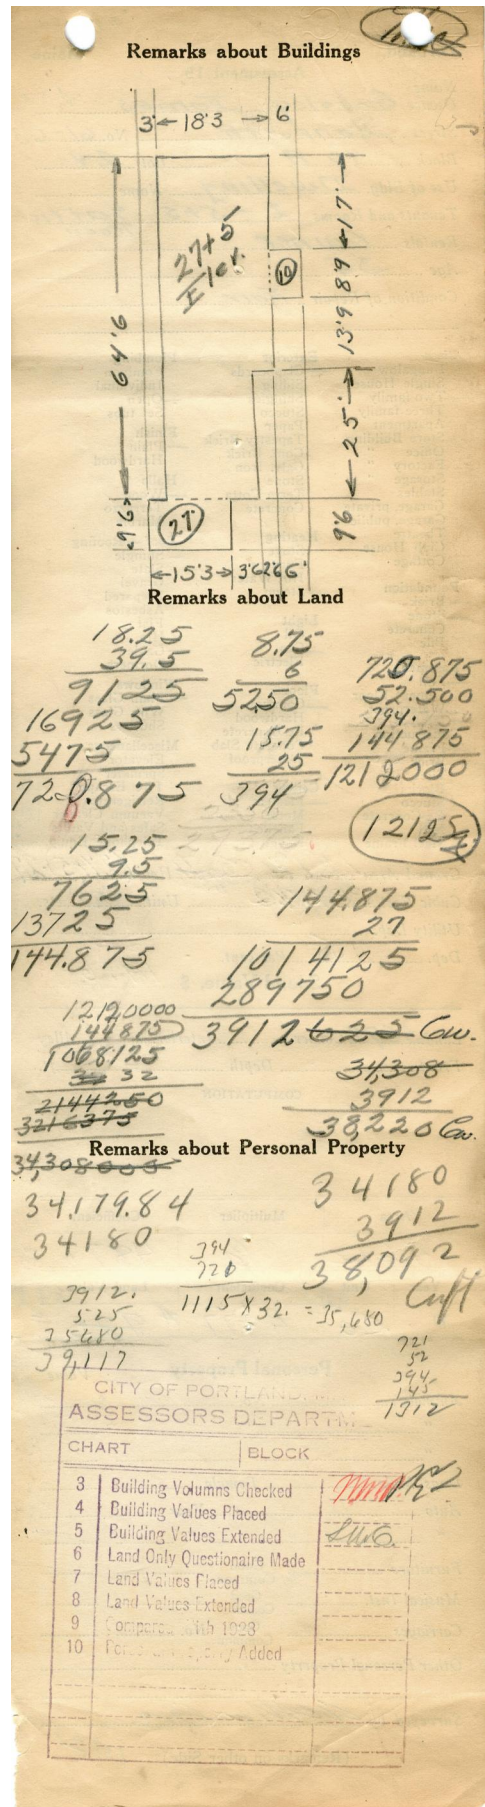 Remarks about Buildings
3' ← 18'3 → 6'
64'6
27+5
17'
10
8'9
13'9
25'
9'6
27
9'6
15'3 3'6 2'6 6'
Remarks about Land
18.25
39.5
9125
16925
5475
720.875
8.75
6
5250
15.75
25
394
720.875
52.500
394.
144.875
1212000
12125
15.25
9.5
7625
13725
144.875
144.875
27
1014125
289750
3912625 Cu.
12120000
144875
1068125
32 32
2144250
3216375
34,308000
34,308
3912
38,220 Cu.
Remarks about Personal Property
34,179.84
34180
34180
3912
38,092
Cuft
394
721
1115 X 32. = 35,680
3912.
525
35680
39,117
721
52
394
145
1312
CITY OF PORTLAND,
ASSESSORS DEPARTME
CHART BLOCK
3 Building Volumns Checked
4 Building Values Placed
5 Building Values Extended
6 Land Only Questionaire Made
7 Land Values Placed
8 Land Values Extended
9 Compared With 1923
10 Personal Property Added